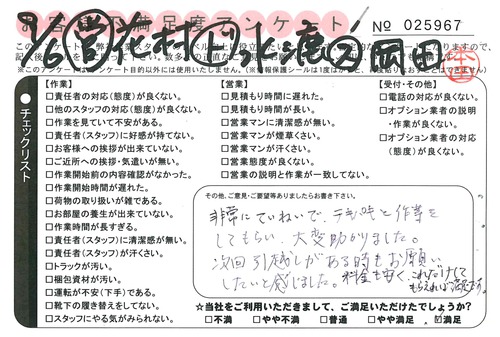 お客様ご不満足度アンケート
№ 025967
9/6 営 木村 ㊣ 水鹿② 岡田
【作業】
□責任者の対応(態度)が良くない。
□他のスタッフの対応(態度)が良くない。
□作業を見ていて不安がある。
□責任者(スタッフ)に好感が持てない。
□お客様への挨拶が出来ていない。
□ご近所への挨拶・気遣いが無い。
□作業開始前の内容確認がなかった。
□作業開始時間が遅れた。
□荷物の取り扱いが雑である。
□お部屋の養生が出来ていない。
□作業時間が長すぎる。
□責任者(スタッフ)に清潔感が無い。
□責任者(スタッフ)が汗くさい。
□トラックが汚い。
□梱包資材が汚い。
□運転が不安(下手)である。
□靴下の履き替えをしていない。
□スタッフにやる気がみられない。
【営業】
□見積もり時間に遅れた。
□見積もり時間が長い。
□営業マンに清潔感が無い。
□営業マンが煙草くさい。
□営業マンが汗くさい。
□営業態度が良くない。
□営業の説明と作業が一致してない。
【受付・その他】
□電話の対応が良くない。
□オプション業者の説明
・作業が良くない。
□オプション業者の対応
(態度)が良くない。
チェックリスト
その他、ご意見・ご要望等ありましたらお書き下さい。
非常にていねいで、テキパキと作業を
してもらい、大変助かりました。
次回引越しがある時もお願い
したいと感じました。料金も安く、これだけして
もらえれば満足です。
☆当社をご利用いただきまして、ご満足いただけたでしょうか?
□不満 □やや不満 □普通 □やや満足 ☑満足